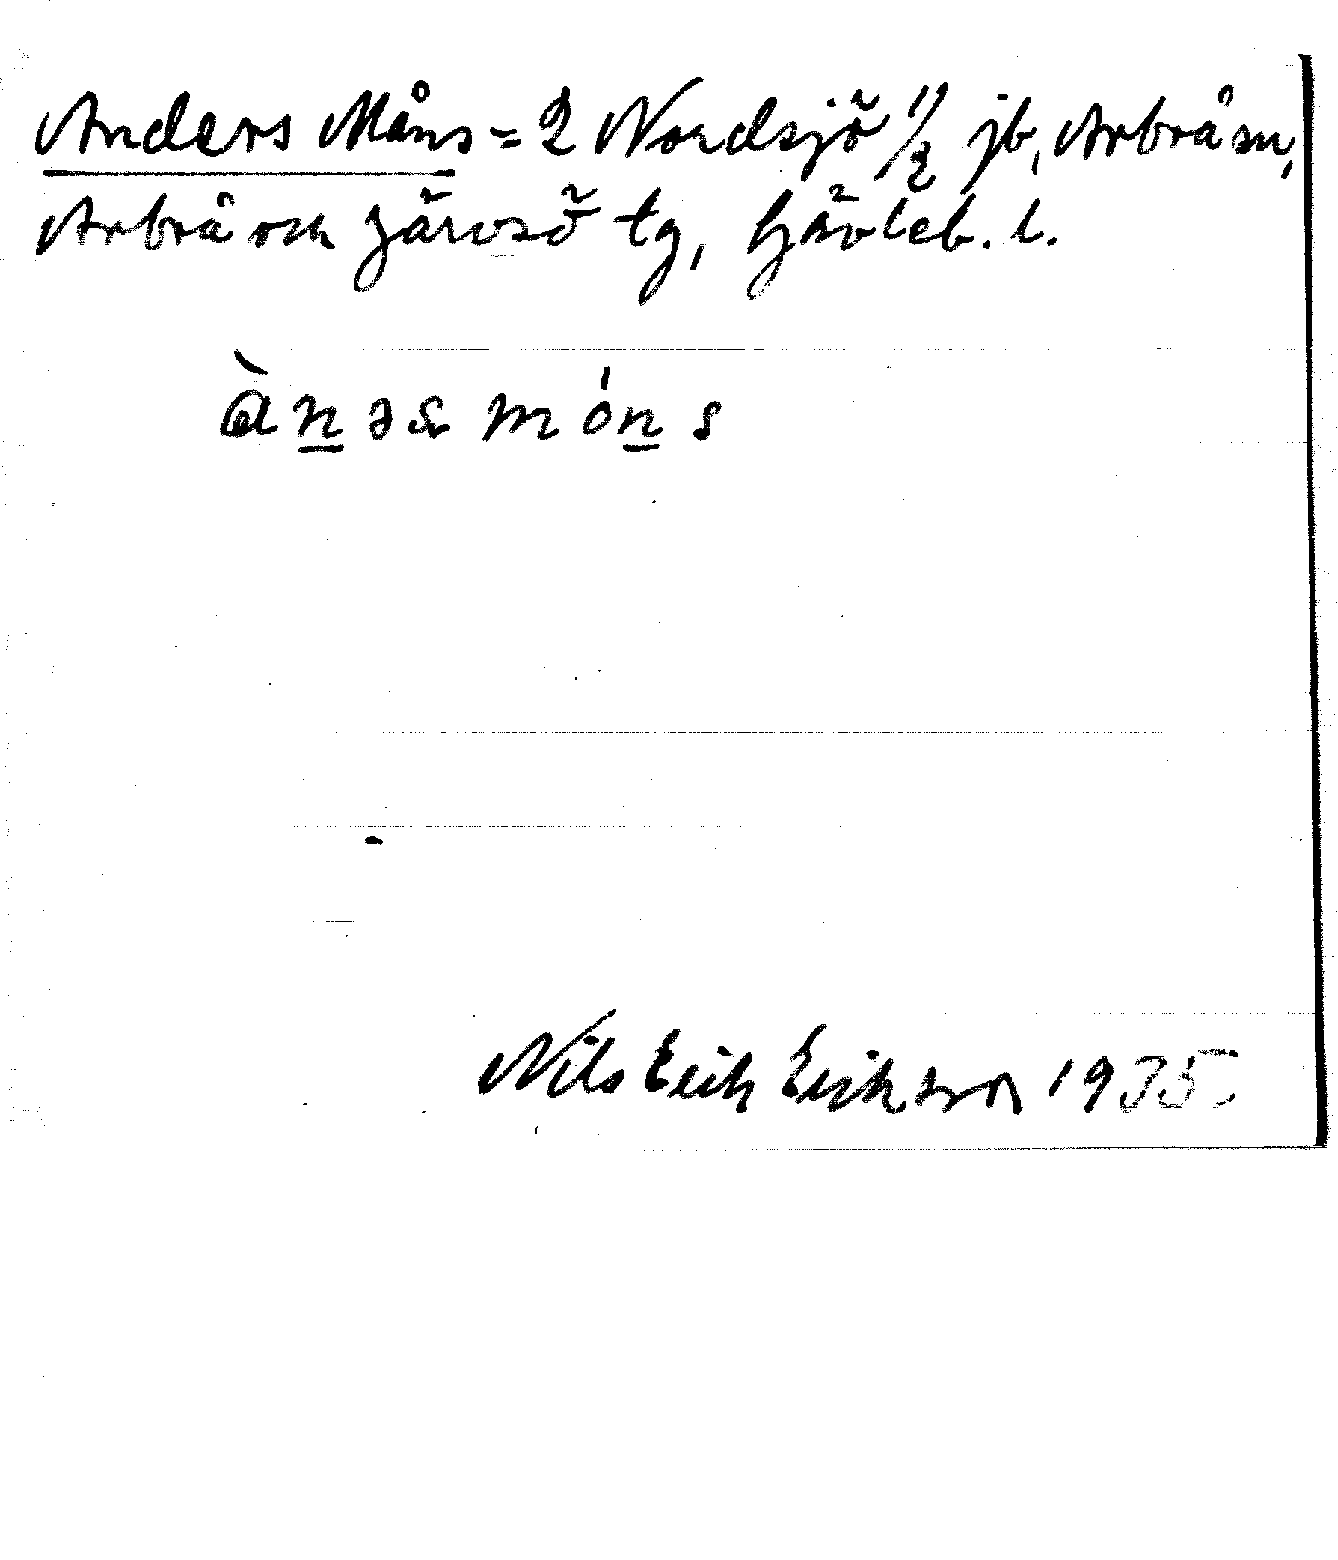 Anders Måns = 2 Nordsjö 1/2 jb, Arbrå sn,
Arbrå och Järvsö tg, Gävleb. l.
ànəs móns
Nils Erik Erikson 1935